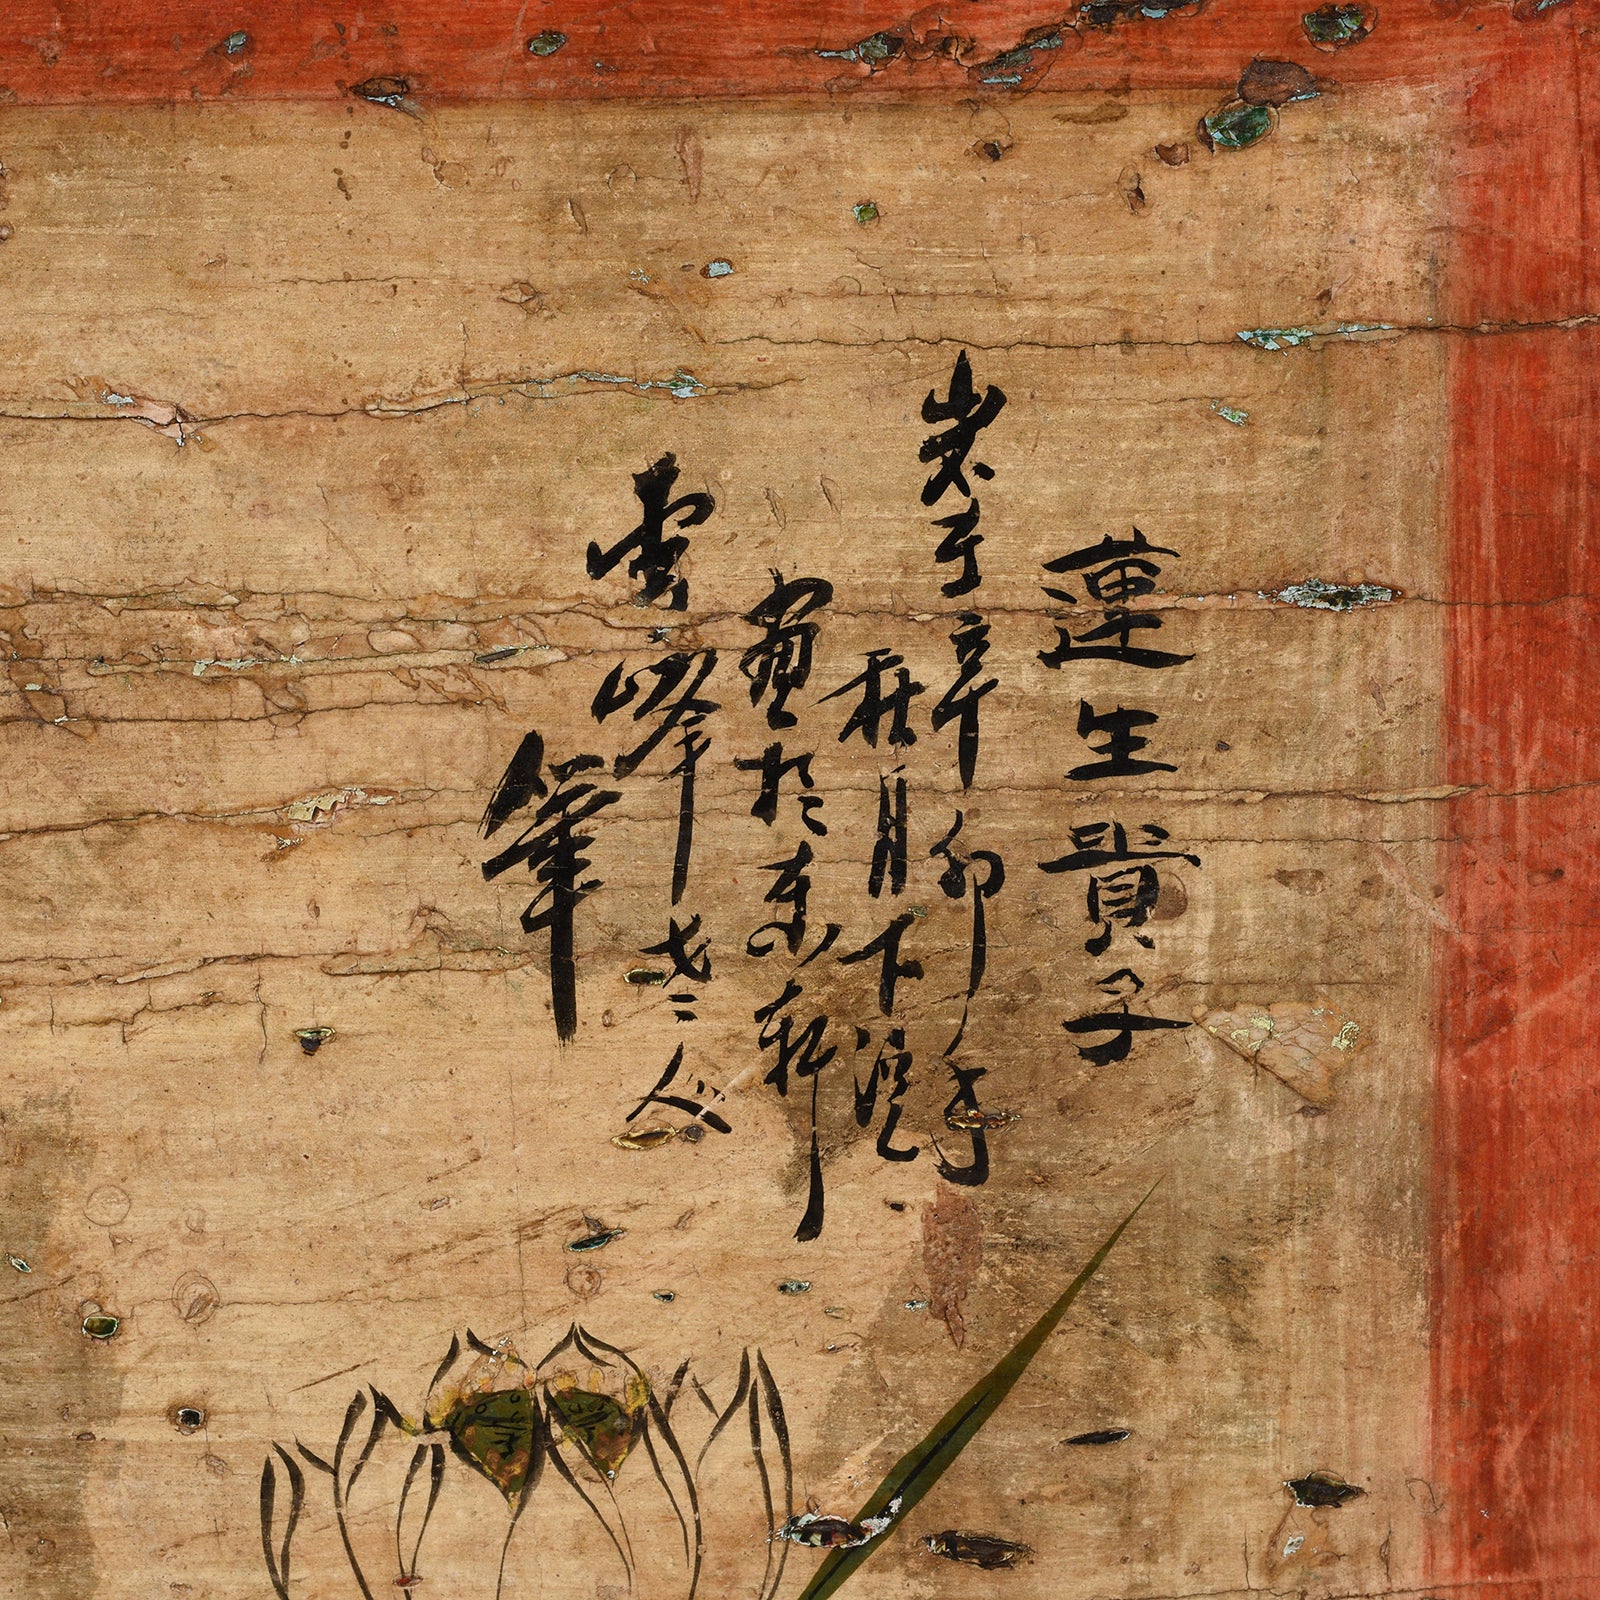 蓮生貴子
歲于辛卯年
秋月下浣
畫於東軒
峰老人
筆